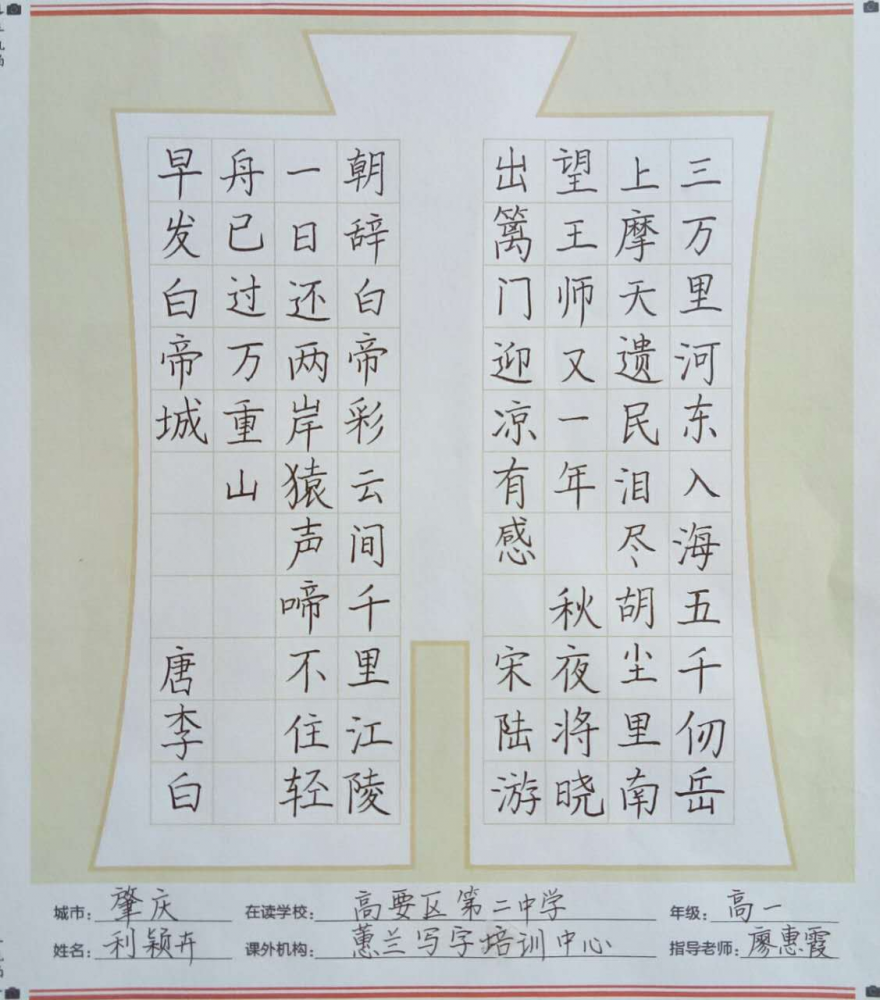 三万里河东入海五千仞岳
上摩天遗民泪尽胡尘里南
望王师又一年 秋夜将晓
出篱门迎凉有感 宋陆游
朝辞白帝彩云间千里江陵
一日还两岸猿声啼不住轻
舟已过万重山
早发白帝城 唐李白
城市：肇庆 在读学校：高要区第二中学 年级：高一
姓名：利颖卉 课外机构：蕙兰写字培训中心 指导老师：廖惠霞